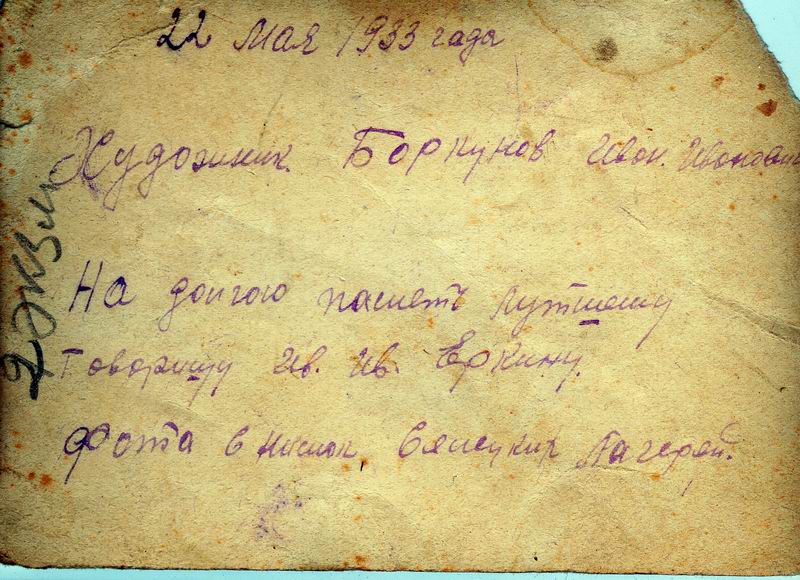 22 Мая 1933 года
Художник. Боркунов Иван. Иванович
На долгою паметь лутшему
товарищу Ив. Ив. Еркину.
Фота в лагерей.
2 экзм